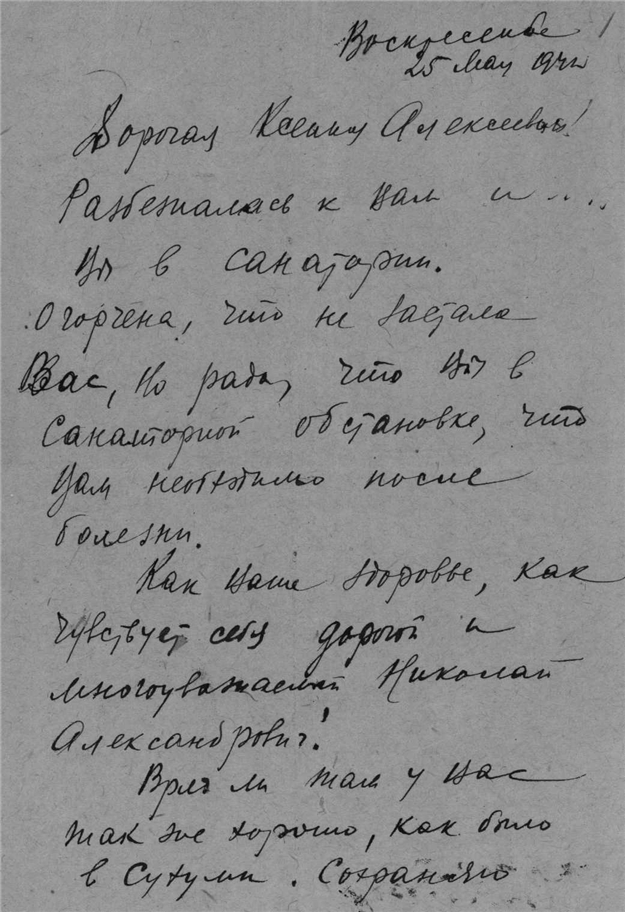 Воскресенье 1
25 мая 1941
Дорогая Ксения Алексеевна!
Разбежалась к Вам и....
Вы в санатории.
Огорчена, что не застала
Вас, но рада, что Вы в
санаторной обстановке, что
Вам необходимо после
болезни.
Как Ваше здоровье, как
чувствует себя дорогой и
многоуважаемый Николай
Александрович!
Вряд ли там у Вас
так же хорошо, как было
в Сухуми. Сохраняю